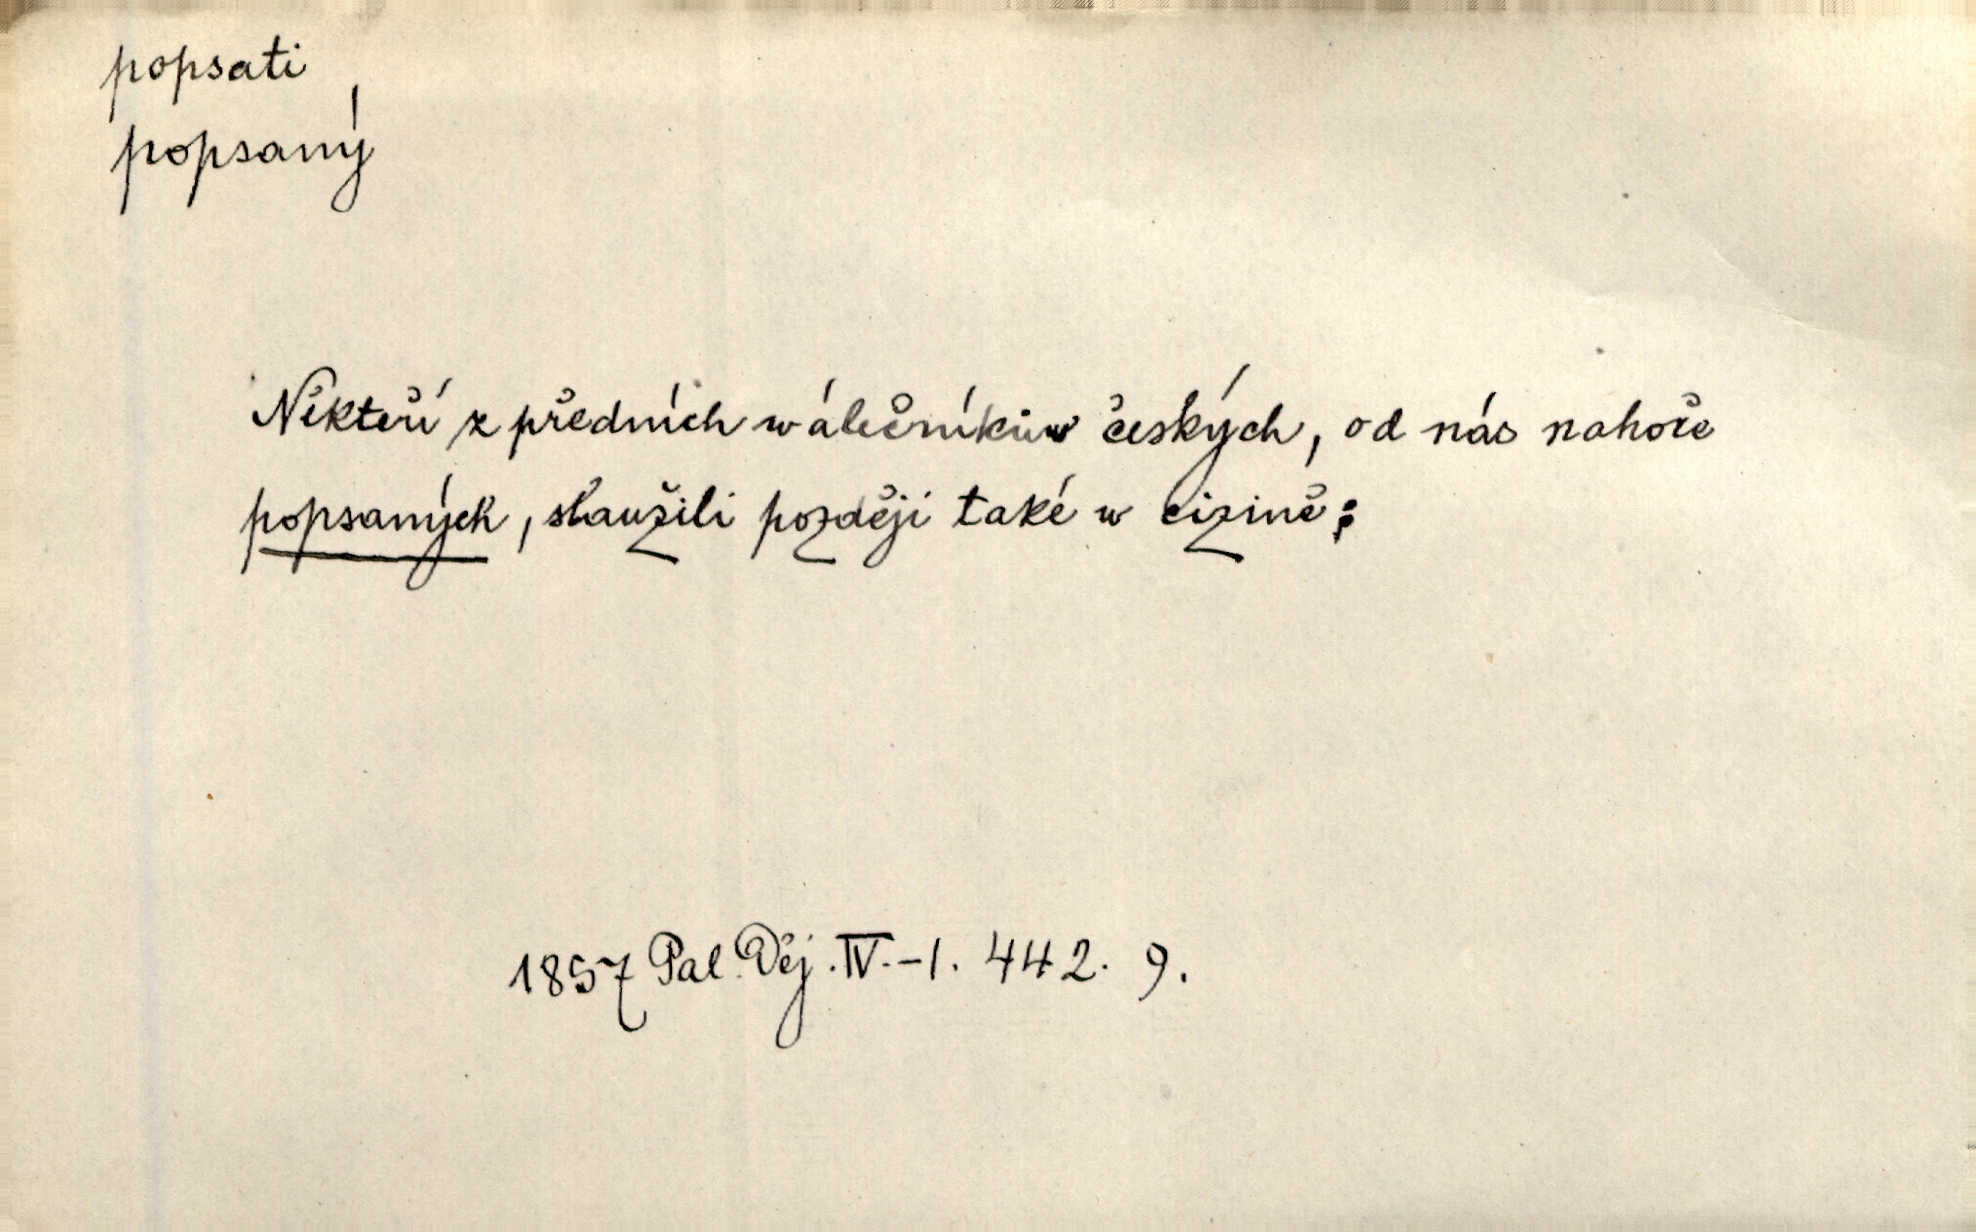 popsati
popsaný
Někteří z předních wálečníkůw českých, od nás nahoře
popsaných, slaužili později také w cizině;
1857 Pal. Děj. IV.-1. 442. 9.